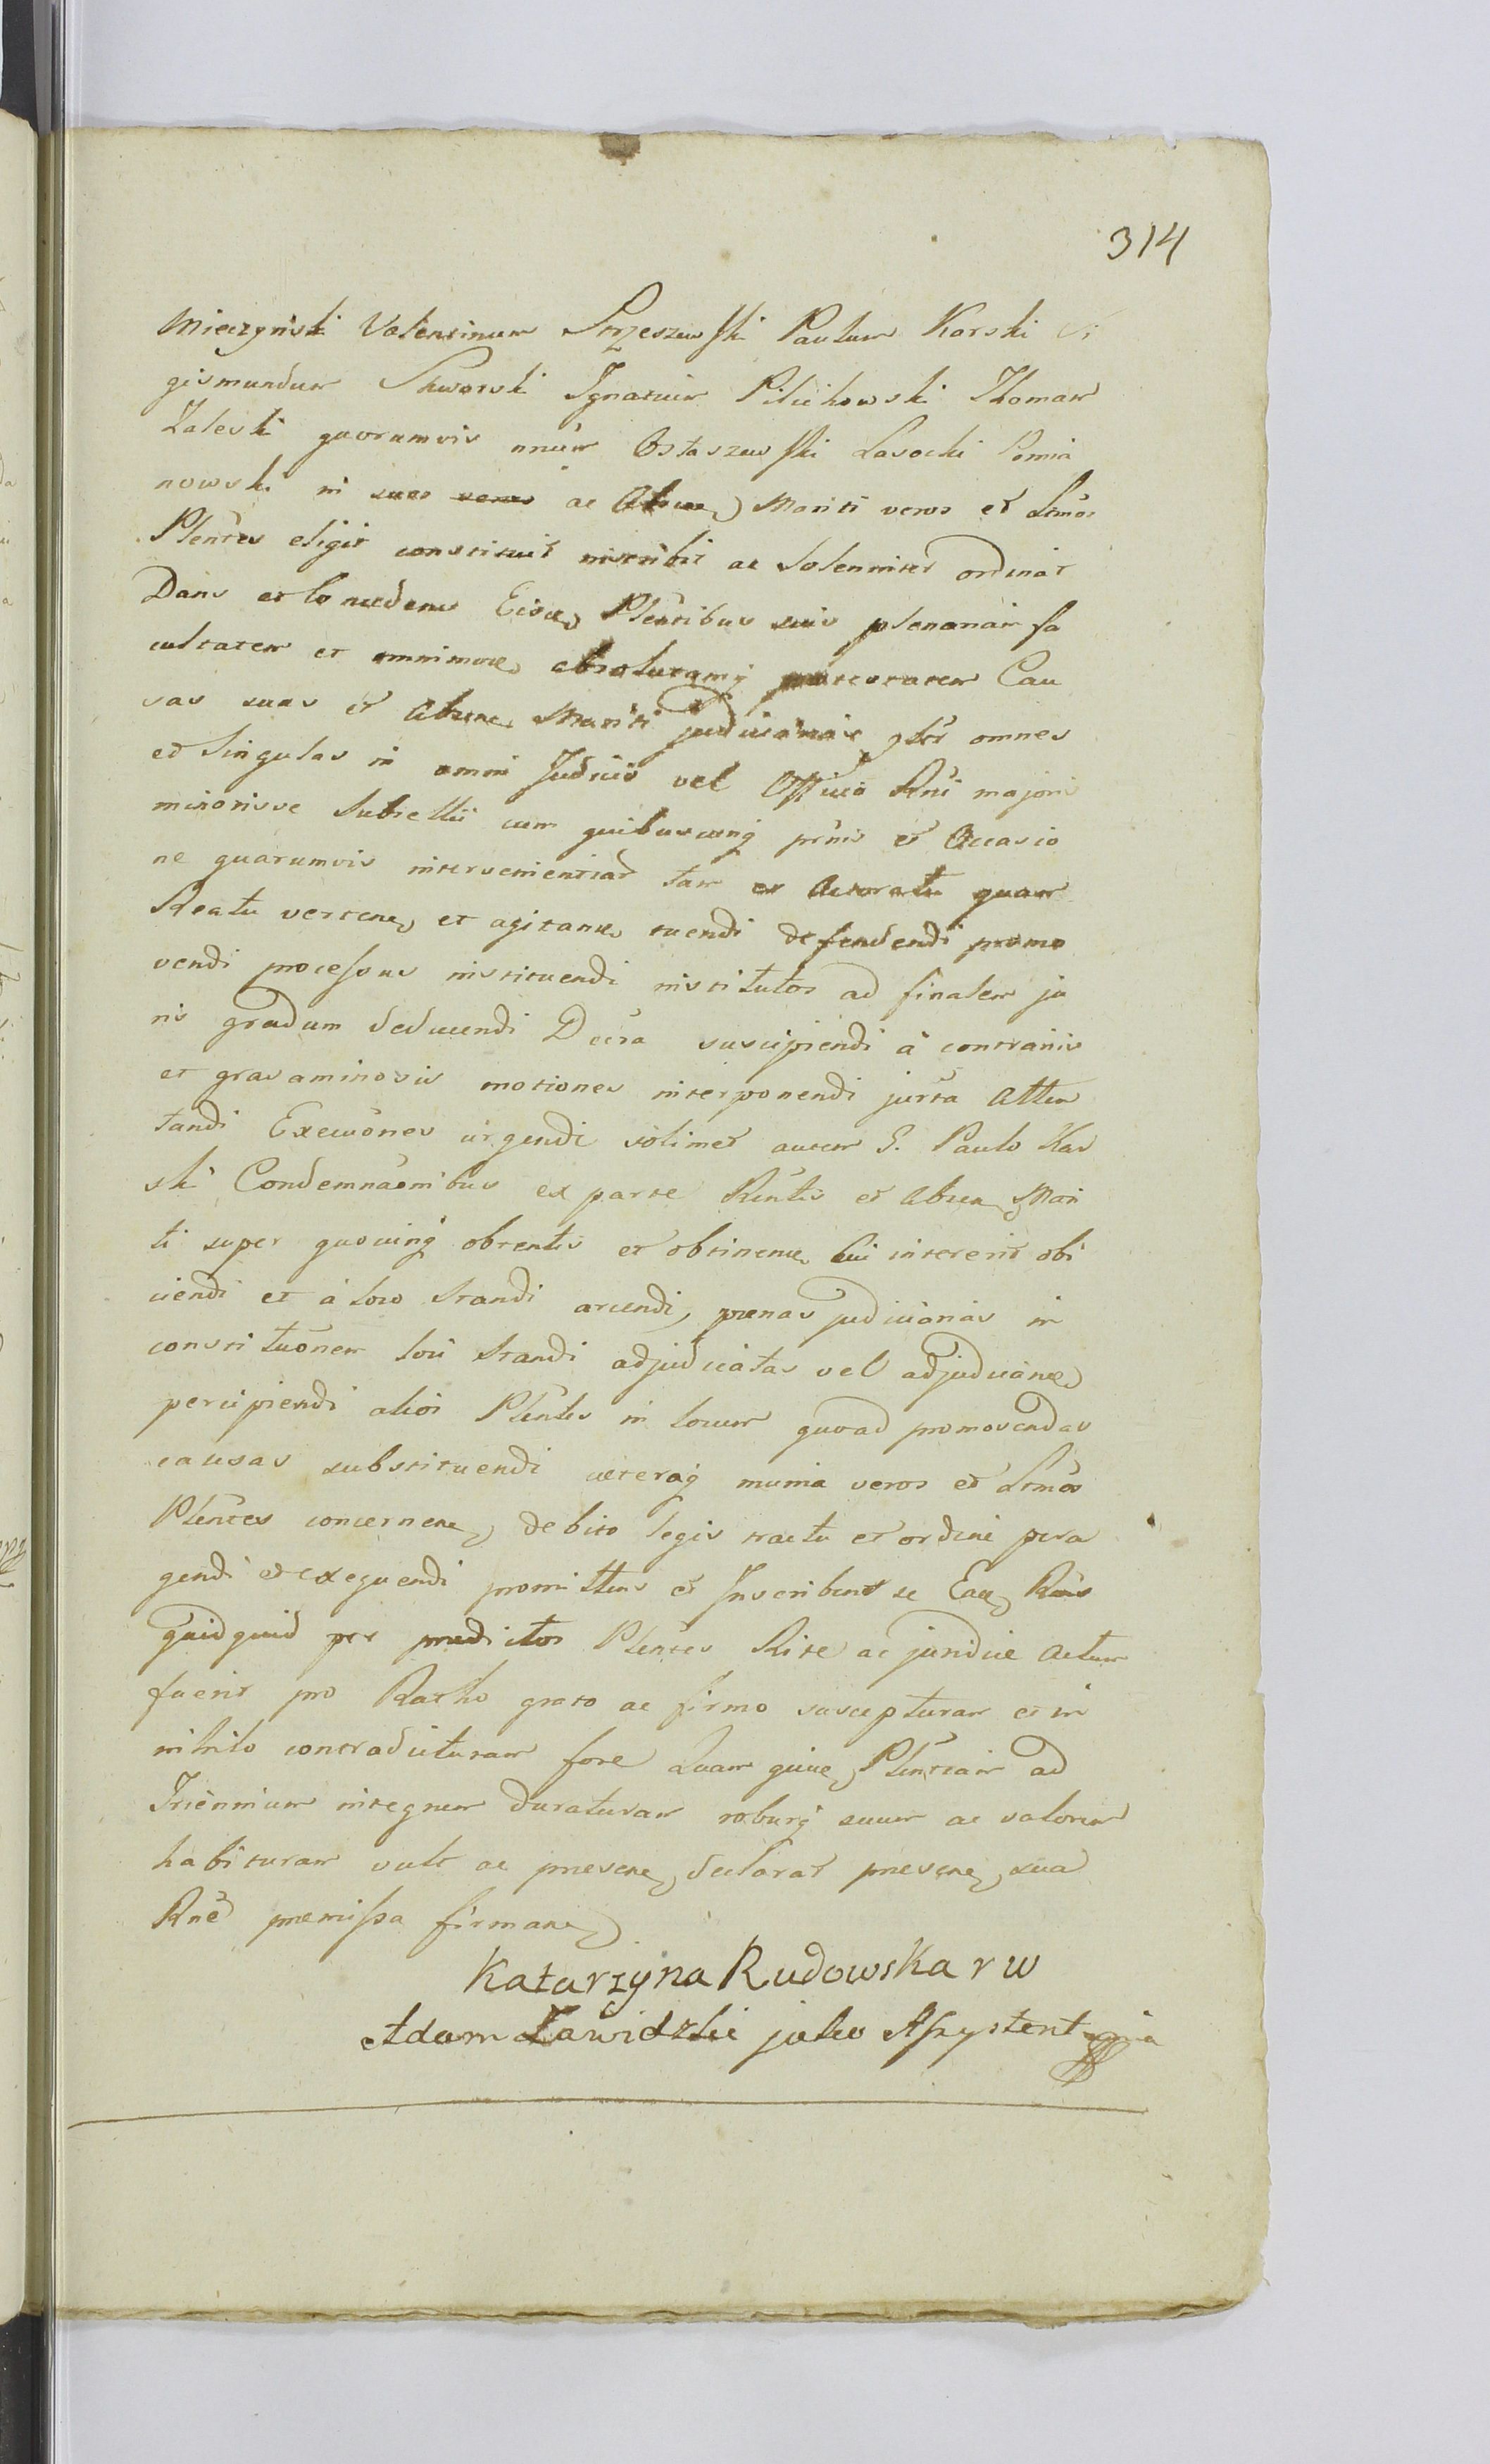 314
Mieczyński Valentinum Strzeszewski Paulum Karski Si
gismundum Skworski Ignatium Pilichowski Thomam
Zaleski quorumvis unius Ostaszewski Lasocki Pomia
nowski in suos ac Absen Mariti veros et Ltmos
Plentes eligit constituit inscribit ac Solenniter ordinat
Dans et Concedens Eisd Plentibus suis plenariam fa
cultatem et omnimod absolutamq potestatem Cau
sas suas et Absen Mariti judiciarias gltr omnes
et Singulas in omni Judicio vel Officio Rni majoris
minorisve Subsellii cum quibuscunq prnis et Occasio
ne quarumvis intervenientiar tam ex Actoratu quam
Reatu verten et agitan tuendi defendendi promo
vendi processus instituendi institutos ad finalem ju
ris gradum deducendi Decra suscipiendi a contrariis
et gravaminosis motiones interponendi jurta Atten
tandi Execuones urgendi solimet autem G. Paulo Kar
ski Condemnaonibus ex parte Rcntis et Absen Mari
ti super quocunq obtentis et obtinen Cui intererit obi
ciendi et a loco Standi arcendi, pœnas judiciarias in
constituonem loci Standi adjudicatas vel adjudican
percipiendi alios Plentes in locum quoad promovendas
causas substituendi ceteraq munia veros et Ltmos
Plentes concernen, debito legis tractu et ordine pera
gendi et exequendi promittens et Inscribens se Ead Rcns
quidquid per predictos Plentes Rite ac juridice Actum
fuerit pro Ratho grato ac firmo suscepturam et in
nihilo contradicturam fore Quam quid Plentiam ad
Triennium integrum duraturam roburq suum ac valorem
habituram vult ac presen declarat presen sua
Rne premissa firman
Katarzyna Rudowska r w
Adam Zawidzki jako Assystent